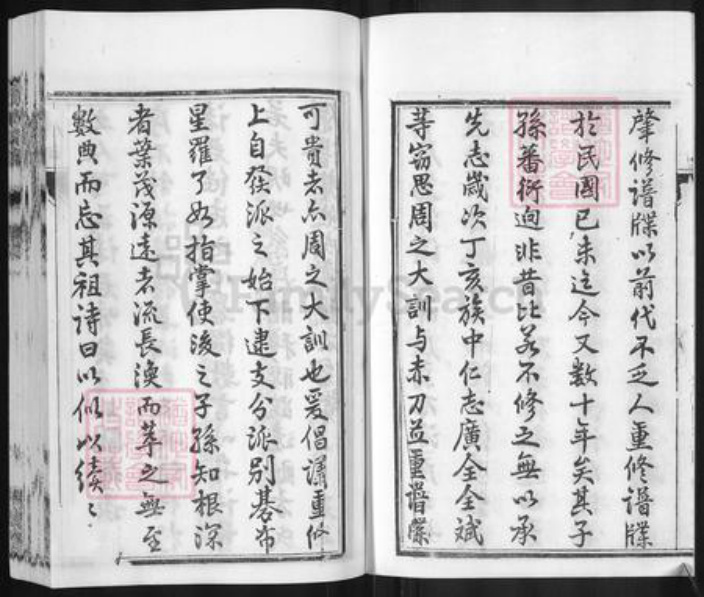 肇修譜牒以前代不乏人重修譜牒
於民國己未迄今又数十年矣其子
孫蕃衍迥非昔比若不修之無以承
先志歲次丁亥族中仁志廣全全斌
等窃思周之大訓与赤刀並重譜牒
可貴者亦周之大訓也爰倡議重修
上自發派之始下逮支分派別碁布
星羅了如指掌使後之子孫知根深
者葉茂源遠者流長渙而萃之無至
數典而忘其祖詩曰以似以續
FamilySearch